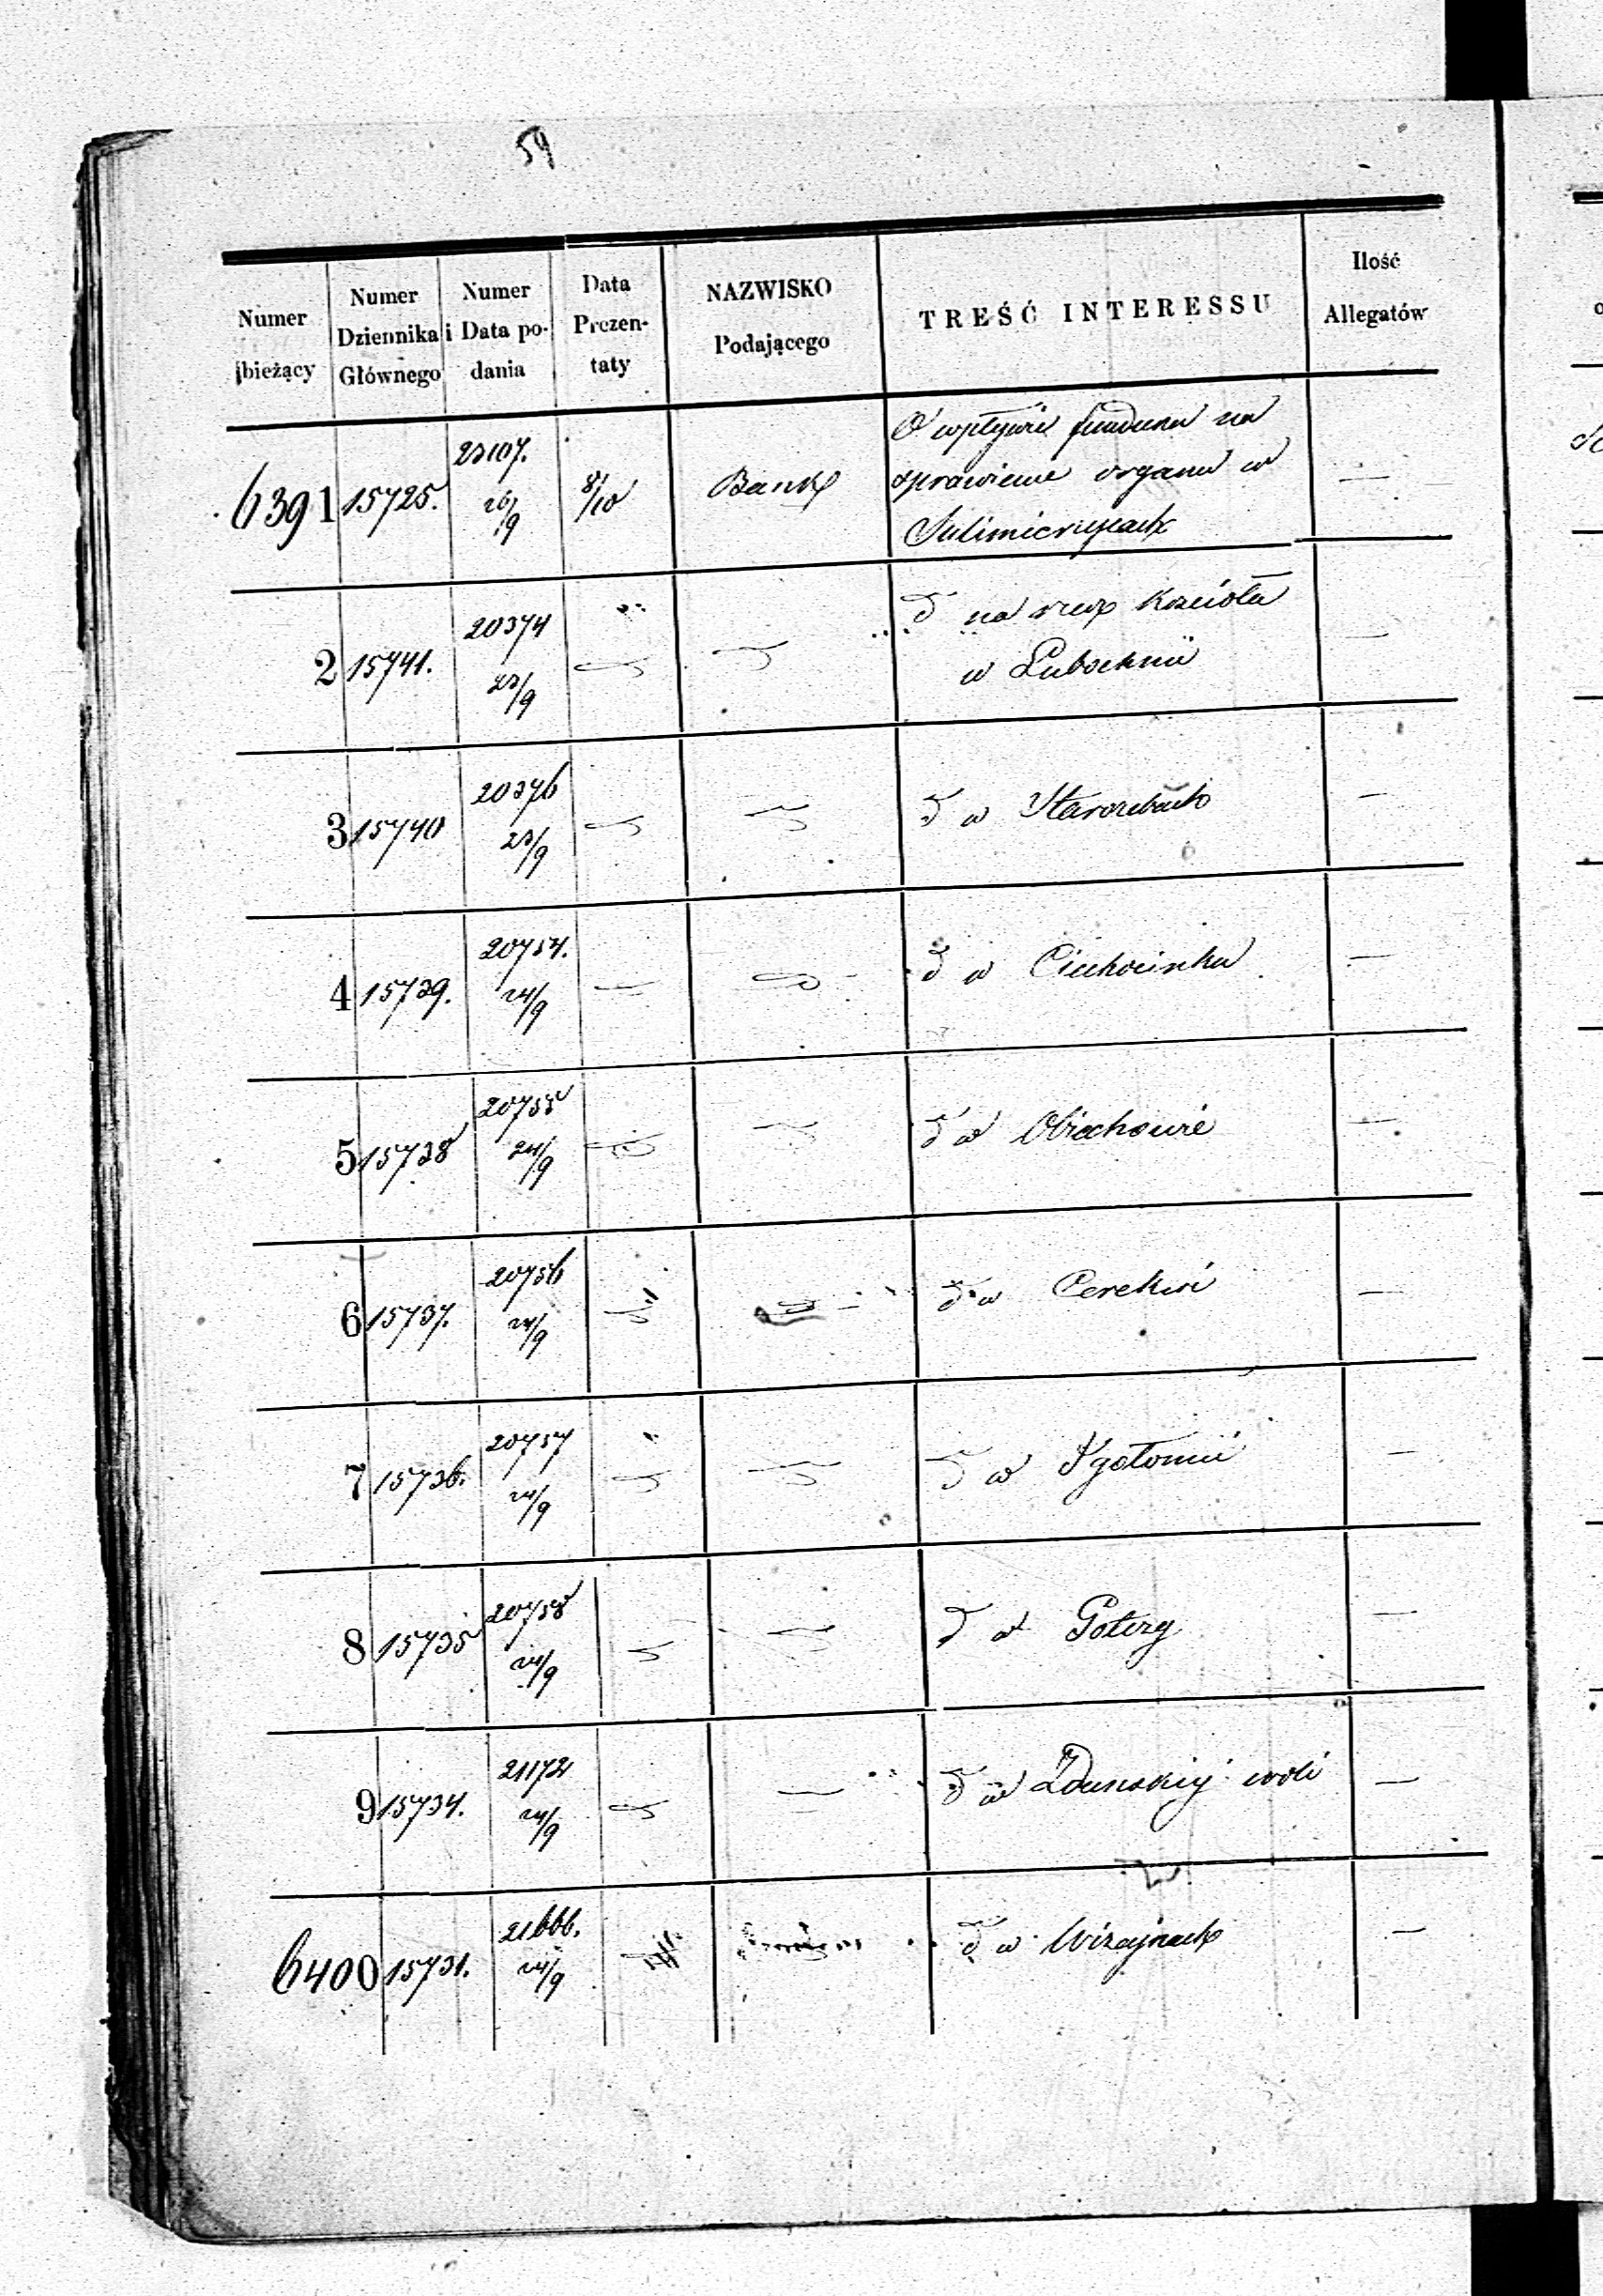 59
Numer bieżący
Numer Dziennika Głównego
Numer i Data podania
Data Prezentaty
NAZWISKO Podającego
TREŚĆ INTERESSU
Ilość Allegatów
6391 15725. 23107. 26/9 8/10 Bank O wpływie funduszu na
sprawienie organu w
Sulimierzycach —
2 15741. 20374 23/9 d na rzecz Kościoła
w Lubochnii —
3 15740 20376 23/9 d w Starozrebach —
4 15739. 20754. 24/9 d w Ciechocinku —
5 15738 20755 24/9 d w Obiechowie —
6 15737. 20756 24/9 d w Cerekwi —
7 15736. 20757 24/9 d w Igołomii —
8 15735 20758 24/9 d w —
9 15734. 21172 24/9 d w Zdunskiy woli —
6400 15731. 21666. 24/9 d w Wizajnach —